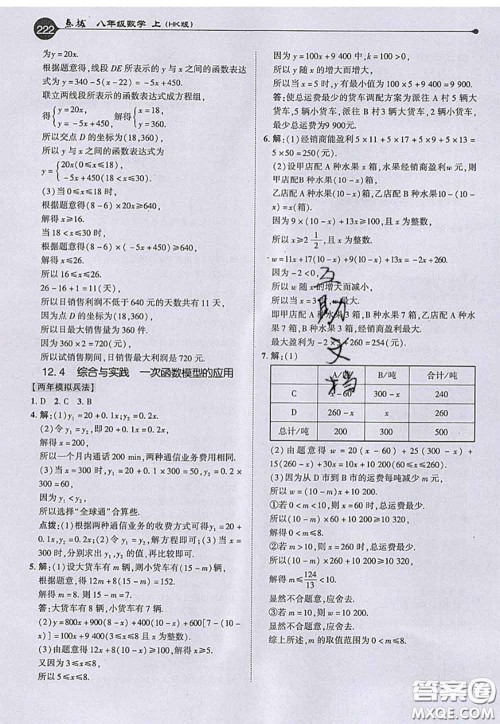 222 点拨 八年级数学 上 (HK版)
为 y=20x.
根据题意得,线段 DE 所表示的 y 与 x 之间的函数表达
式为 y=340-5(x-22)=-5x+450.
联立两线段所表示的函数表达式成方程组,
得{y=20x, y=-5x+450, 解得{x=18, y=360,
所以交点 D 的坐标为(18,360),
所以 y 与 x 之间的函数表达式为
y={20x(0≤x≤18), -5x+450(18<x≤30).
(3)当 0≤x≤18 时,
根据题意得(8-6)×20x≥640,
解得 x≥16.
当 18<x≤30 时,
根据题意得(8-6)×(-5x+450)≥640,
解得 x≤26.
所以 16≤x≤26.
26-16+1=11(天),
所以日销售利润不低于 640 元的天数共有 11 天,
因为点 D 的坐标为(18,360),
所以日最大销售量为 360 件,
因为 360×2=720(元),
所以试销售期间,日销售最大利润是 720 元.
12.4 综合与实践 一次函数模型的应用
【两年模拟兵法】
1. D 2. C 3. B
4. 解:(1)y₁=20+0.1x,y₂=0.2x.
(2)令 y₁=y₂,即 20+0.1x=0.2x,
解得 x=200.
所以一个月内通话 200 min,两种通信业务费用相同.
(3)当 x=300 时,y₁=20+0.1×300=50,
y₂=0.2×300=60.
因为 y₁<y₂,
所以选择“全球通”合算些.
点拨:(1)根据两种通信业务的收费方式可得 y₁=20+
0.1x,y₂=0.2x;(2)令 y₁=y₂,解方程即可;(3)当 x=
300 时,分别求出 y₁,y₂ 的值,再进行比较即可.
5. 解:(1)设大货车有 m 辆,则小货车有(15-m)辆,
根据题意,得 12m+8(15-m)=152,
解得 m=8,15-m=7.
答:大货车有 8 辆,小货车有 7 辆.
(2)y=800x+900(8-x)+400(10-x)+600(x-3)=
100x+9 400(3≤x≤8,且 x 为整数).
(3)由题意得 12x+8(10-x)≥100,解得 x≥5.
又因为 3≤x≤8,
所以 5≤x≤8.
因为 y=100x+9 400,100>0,
所以 y 随 x 的增大而增大,
所以当 x=5 时,y 有最小值,
最小值为 y=100×5+9 400=9 900.
答:使总运费最少的货车调配方案为派往 A 村 5 辆大
货车,5 辆小货车;派往 B 村 3 辆大货车,2 辆小货车,
最少总运费为 9 900 元.
6. 解:(1)经销商能盈利 5×11+5×17+5×9+5×13=
5×50=250(元).
(2)设甲店配 A 种水果 x 箱,水果经销商盈利 w 元,则
甲店配 B 种水果(10-x)箱,
乙店配 A 种水果(10-x)箱,乙店配 B 种水果 10-
(10-x)=x(箱).
因为 9×(10-x)+13x≥100,且 x 为整数,
所以 x≥2 1/2,且 x 为整数.
w=11x+17(10-x)+9(10-x)+13x=-2x+260.
因为 -2<0,
所以 w 随 x 的增大而减小,
所以当 x=3
即甲店配 A 种水果 3 箱,B 种水果 7 箱,乙店配 A 种水果 7 箱,B 种水果 3 箱.
最大盈利
7. 解:(1)
A/吨 B/吨 合计/吨
C x-60 300-x 240
D 260-x x 260
总计/吨 200 300 500
(2)由题意得 w=20(x-60)+25(300-x)+
15(260-x)+30x=10x+10 200(60≤x≤260).
(3)因为从 D 市到 B 市的运费每吨减少 m 元,
所以 w=(10-m)x+10 200.
①若 0<m<10,则 x=60 时,总运费最少.
所以(10-m)×60+10 200≥10 320,
解得 m≤8.
所以 0<m≤8.
②若 m>10,则 x=260 时,总运费最少.
所以(10-m)×260+10 200≥10 320,
解得 m≤124/13<10.
显然不合题意,应舍去.
③若 m=10,则 w=10 200<10 320,
显然不合题意,应舍去.
综上所述,m 的取值范围为 0<m≤8.
互助文档
答案圈
MXQE.COM